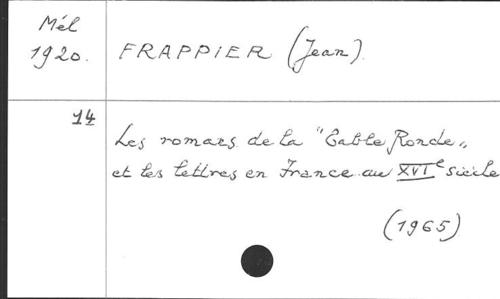 Mél
1920.
FRAPPIER (Jean).
14
Les romans de la "Table Ronde"
et les lettres en France au XVIe siècle
(1965)